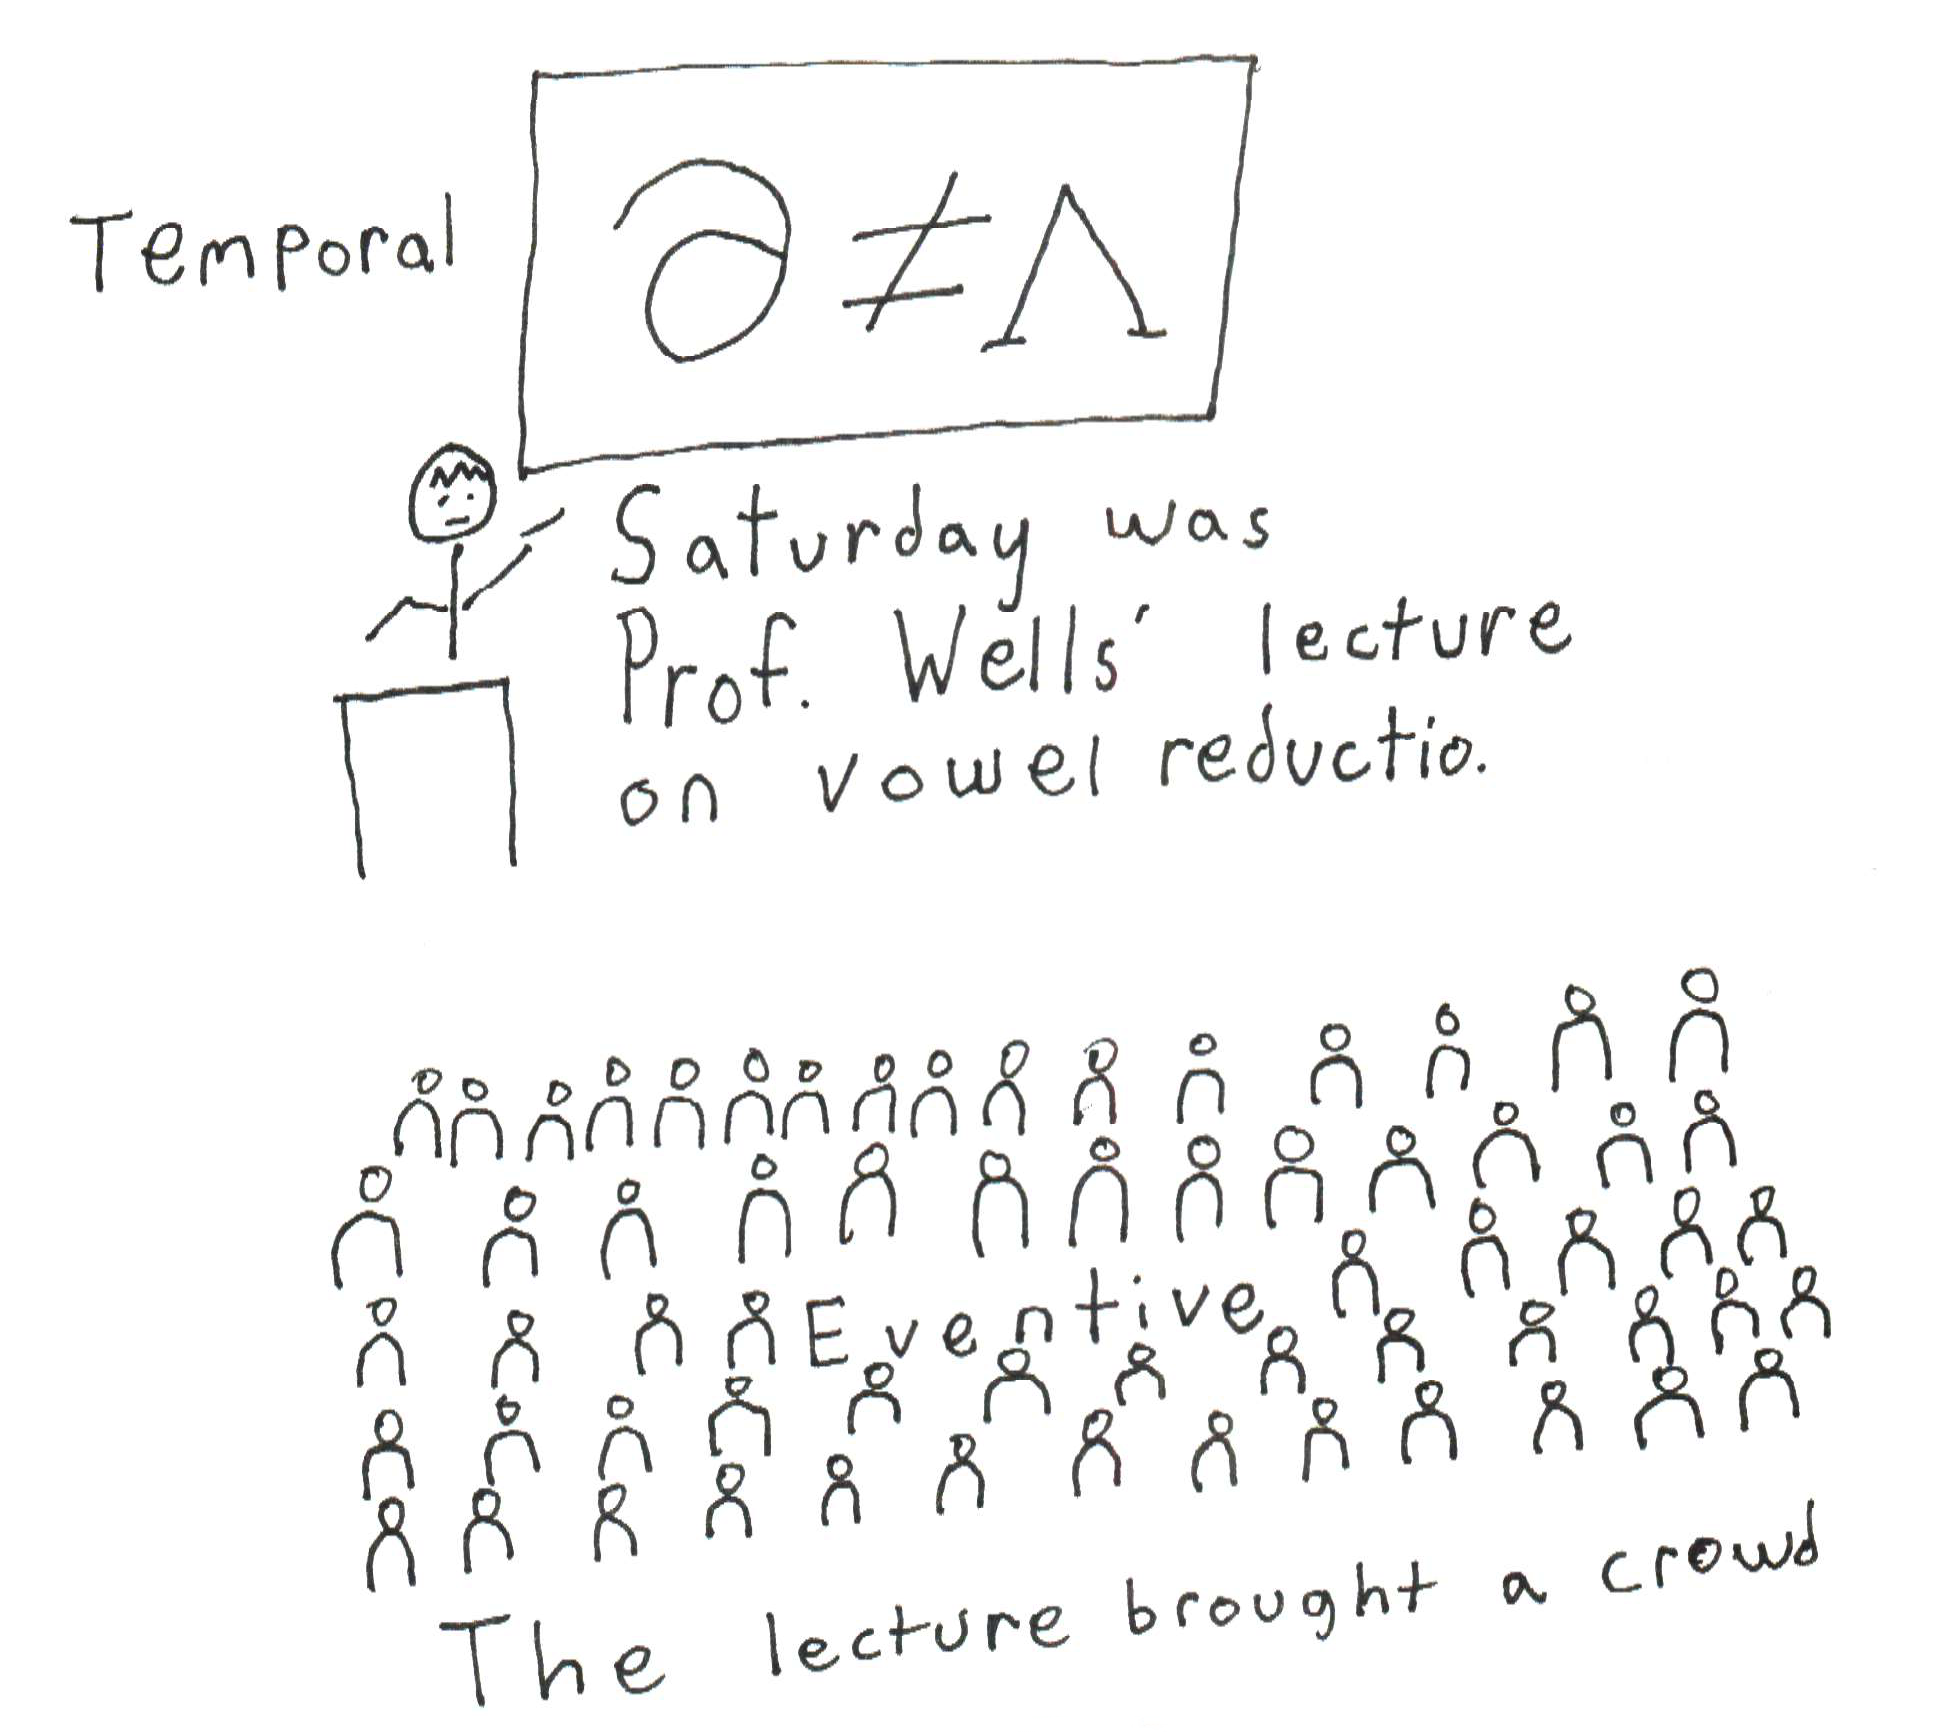 Temporal
ə ≠ Λ
Saturday was
Prof. Wells' lecture
on vowel reductio.
Eventive
The lecture brought a crowd